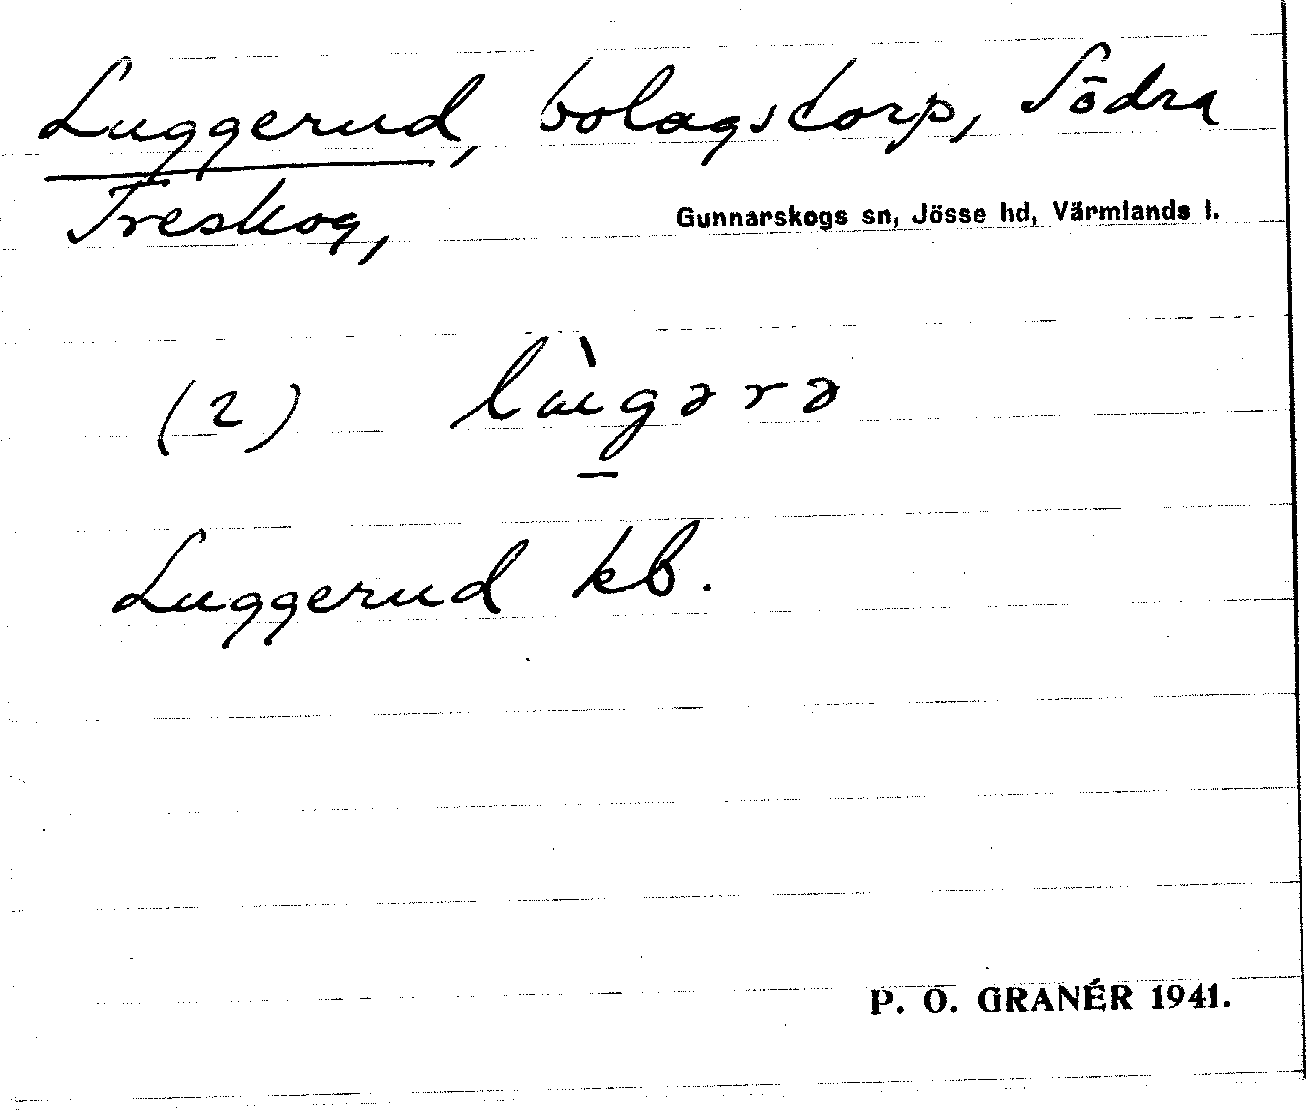 Luggerud, bolagstorp, Södra
Treskog,
Gunnarskogs sn, Jösse hd, Värmlands l.
(2) lɯ̀g̠ərə
Luggerud kb.
P. O. GRANÉR 1941.